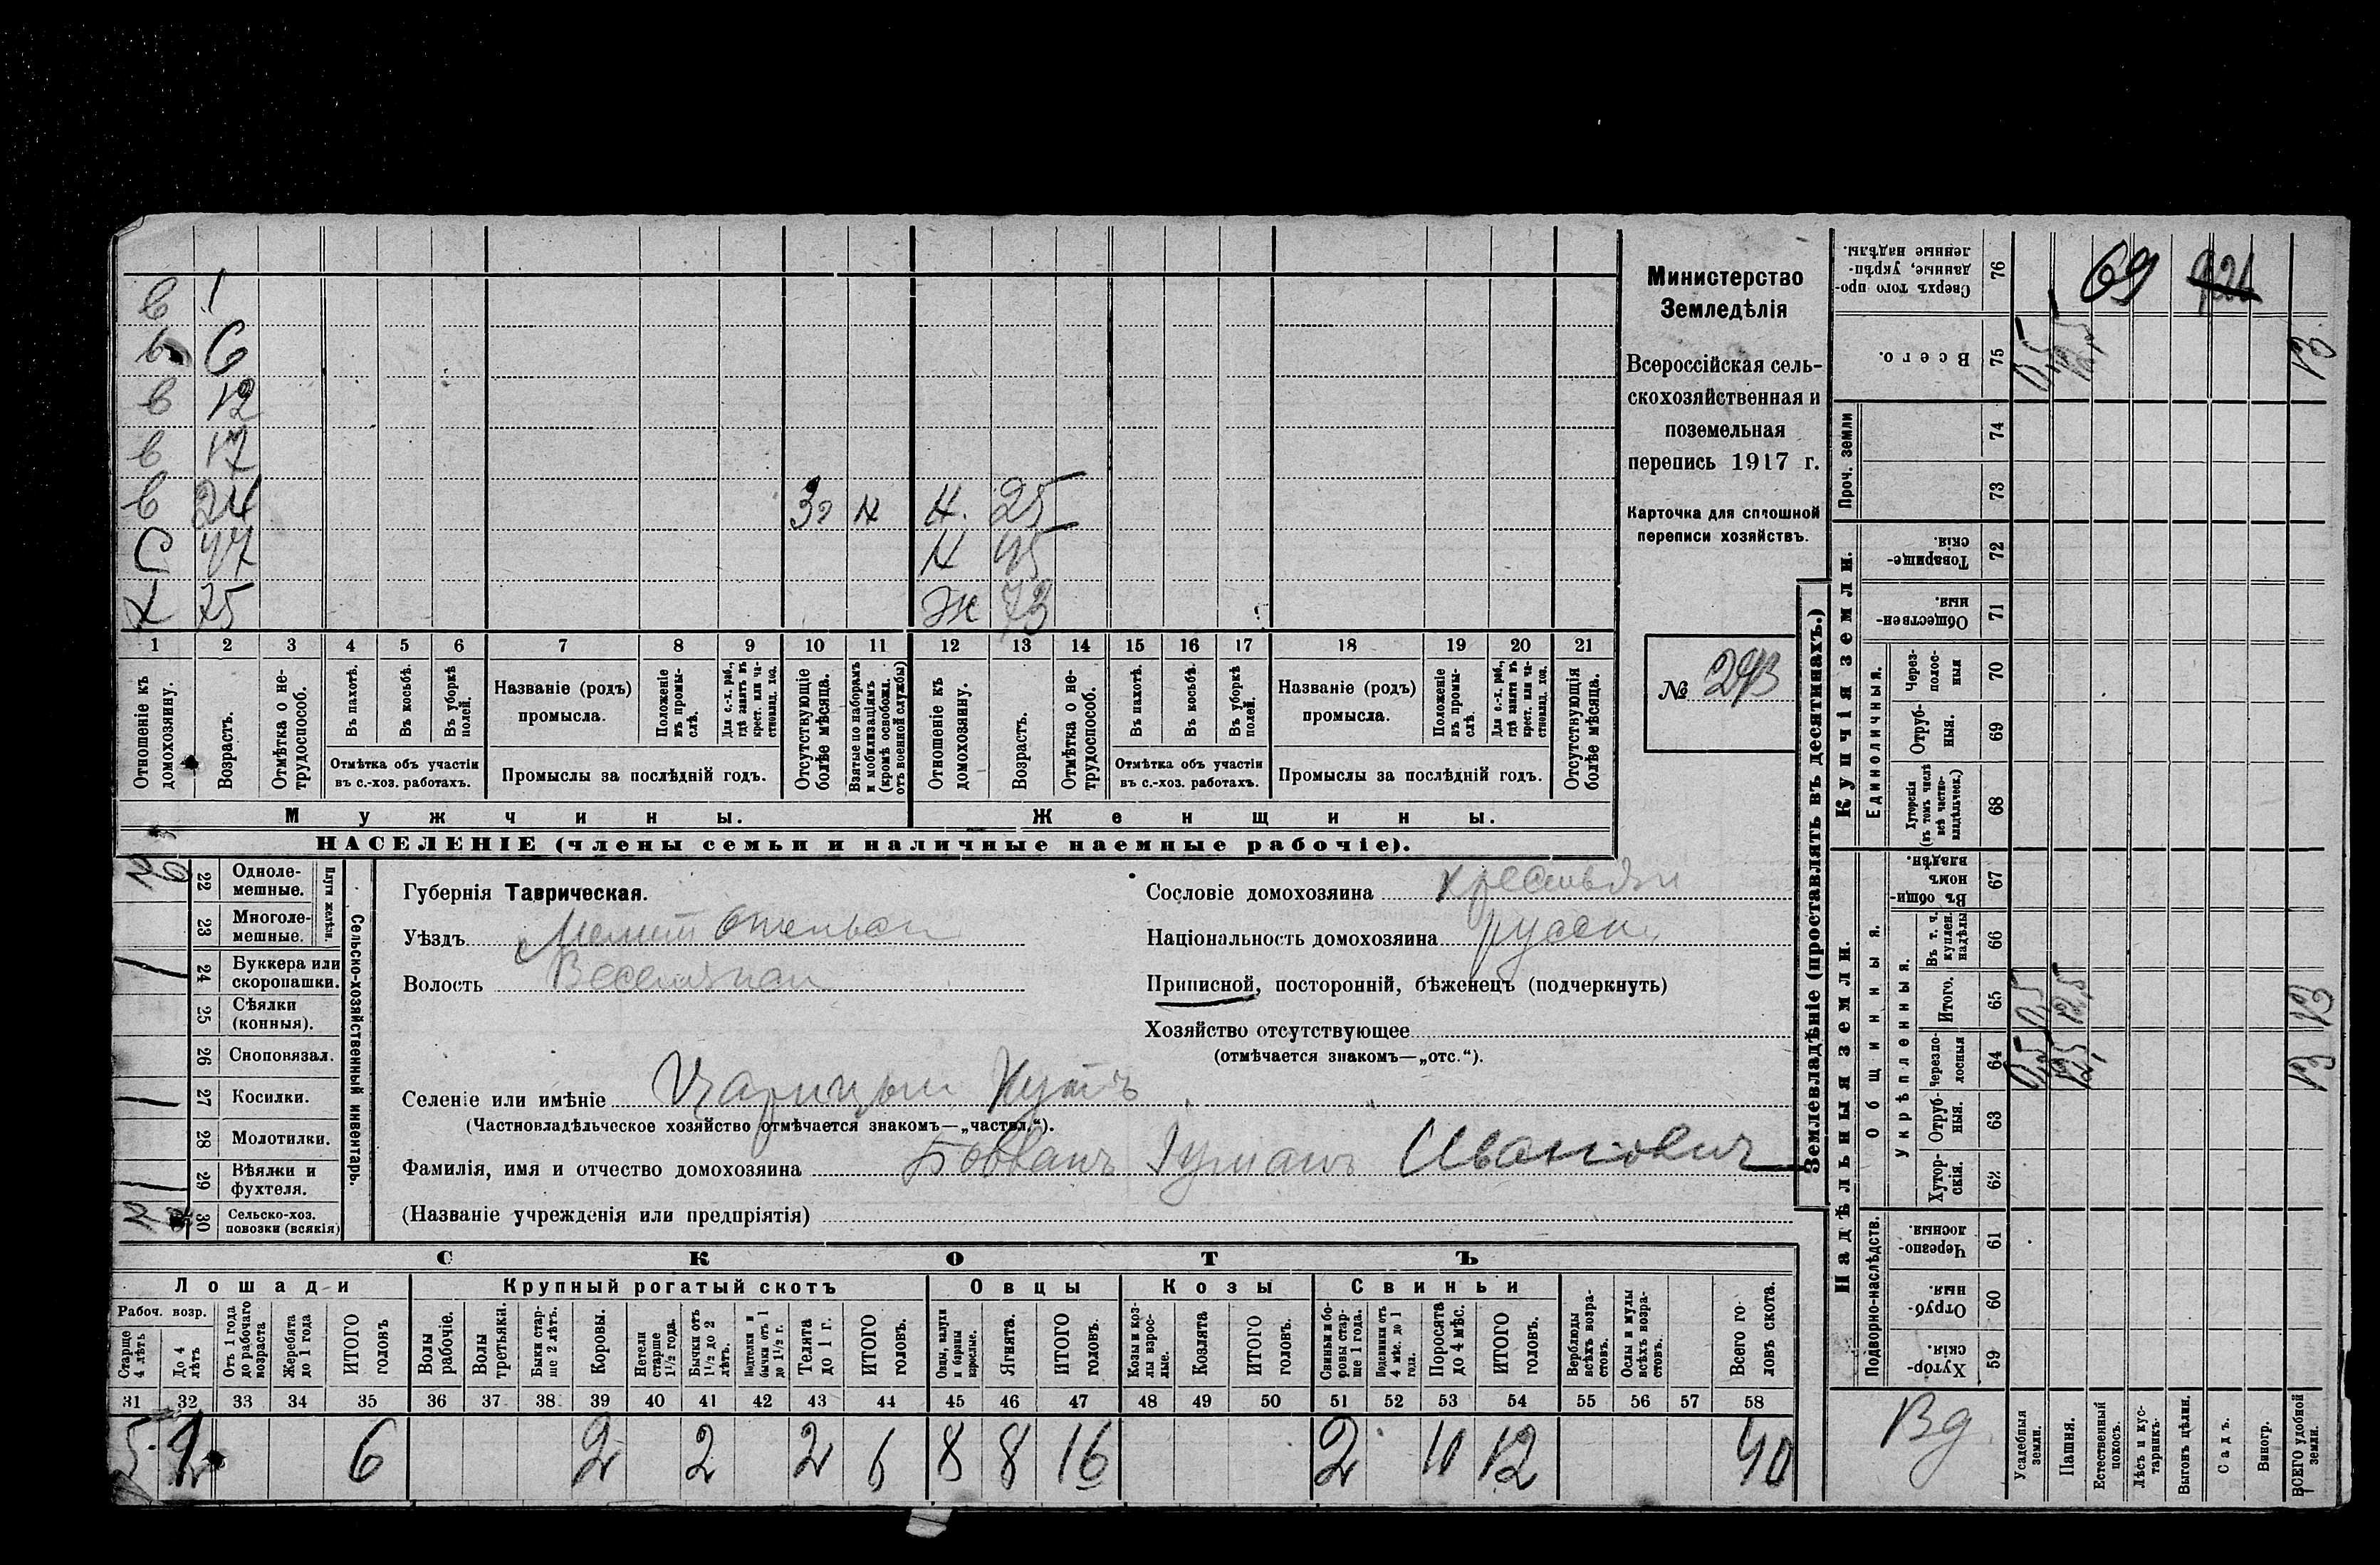 в 1
в 6
в 12
в 17
в 24 Н. 25
С 47 Н 45
Х 75 Ж 73
1 2 3 4 5 6 7 8 9 10 11 12 13 14 15 16 17 18 19 20 21
Отношеніе къ домохозяину.
Возрастъ.
Отмѣтка о нетрудоспособ.
Въ пахотѣ.
Въ косьбѣ.
Въ уборкѣ полей.
Отмѣтка объ участіи въ с.-хоз. работахъ.
Названіе (родъ) промысла.
Положеніе въ промыслѣ.
Для с.-х. раб., гдѣ занятъ въ крест. или частновлад. хоз.
Промыслы за послѣдній годъ.
Отсутствующіе болѣе мѣсяца.
Взятые по наборамъ и мобилизаціямъ (кромѣ освобожд. отъ военной службы)
Отношеніе къ домохозяину.
Возрастъ.
Отмѣтка о нетрудоспособ.
Въ пахотѣ.
Въ косьбѣ.
Въ уборкѣ полей.
Отмѣтка объ участіи въ с.-хоз. работахъ.
Названіе (родъ) промысла.
Положеніе въ промыслѣ.
Для с.-х. раб., гдѣ занята въ крест. или частновлад. хоз.
Промыслы за послѣдній годъ.
Отсутствующія болѣе мѣсяца.
Мужчины.
Женщины.
НАСЕЛЕНІЕ (члены семьи и наличные наемные рабочіе).
Министерство
Земледѣлія
Всероссійская сель-
скохозяйственная и
поземельная
перепись 1917 г.
Карточка для сплошной
переписи хозяйствъ.
№ 293
22 Однолемешные.
23 Многолемешные.
Плуги желѣзн.
24 Буккера или скоропашки.
25 Сѣялки (конныя).
26 Сноповязал.
27 Косилки.
28 Молотилки.
29 Вѣялки и фухтеля.
2 30 Сельско-хоз. повозки (всякія)
Сельско-хозяйственный инвентарь.
Губернія Таврическая.
Уѣздъ
Волость
Сословіе домохозяина
Національность домохозяина
Приписной, посторонній, бѣженецъ (подчеркнуть)
Хозяйство отсутствующее
(отмѣчается знакомъ—„отс.“).
Селеніе или имѣніе Царицын Кутъ
(Частновладѣльческое хозяйство отмѣчается знакомъ—„частвл.“).
Фамилія, имя и отчество домохозяина Иванович
(Названіе учрежденія или предпріятія)
СКОТЪ
Лошади
Крупный рогатый скотъ
Овцы
Козы
Свиньи
Рабоч. возр.
Старше 4 лѣтъ
До 4 лѣтъ
Отъ 1 года до рабочаго возраста
Жеребята до 1 года
ИТОГО головъ
Волы рабочіе.
Волы третьяки.
Быки старше 2 лѣтъ.
Коровы.
Нетели старше 1 1/2 года.
Бычки отъ 1 1/2 до 2 лѣтъ.
Подтелки и бычки отъ 1 до 1 1/2 г.
Телята до 1 г.
ИТОГО головъ.
Овцы, валухи и бараны взрослые.
Ягнята.
ИТОГО головъ.
Козы и козлы взрослые.
Козлята
ИТОГО головъ.
Свиньи и боровы старше 1 года.
Подсвинки отъ 4 мѣс. до 1 года.
Поросята до 4 мѣс.
ИТОГО головъ.
Верблюды всѣхъ возрастовъ.
Ослы и мулы всѣхъ возрастовъ.
Всего головъ скота.
31 32 33 34 35 36 37 38 39 40 41 42 43 44 45 46 47 48 49 50 51 52 53 54 55 56 57 58
5 1 6 2 2 2 6 8 8 16 2 10 12 40
Землевладѣніе (проставлять въ десятинахъ.)
Надѣльныя земли.
Купчія земли.
Проч. земли
Подворно-наслѣдств.
Общинныя.
Укрѣпленныя.
Единоличныя.
Сверхъ того проданные, укрѣпленные надѣлы. 76
Всего. 75 0,5 12,5 13
74
73
Товарищескія. 72
Общественныя. 71
Черезполосныя 70
Отрубныя. 69
Хуторскія (въ томъ числѣ всѣ частновладѣльческ.) 68
Въ общинномъ владѣн. 67
Въ т. ч. куплен. надѣлы 66
Итого. 65 0,5 12,5 13
Черезполосныя 64 0,5 12,5 13
Отрубныя. 63
Хуторскія. 62
Черезполосныя 61
Отрубныя. 60
Хуторскія. 59
69
Вд
Усадебныя земли.
Пашня.
Естественный покосъ.
Лѣсъ и кустарникъ.
Выгонъ цѣлин.
Садъ.
Виногр.
ВСЕГО удобной земли.